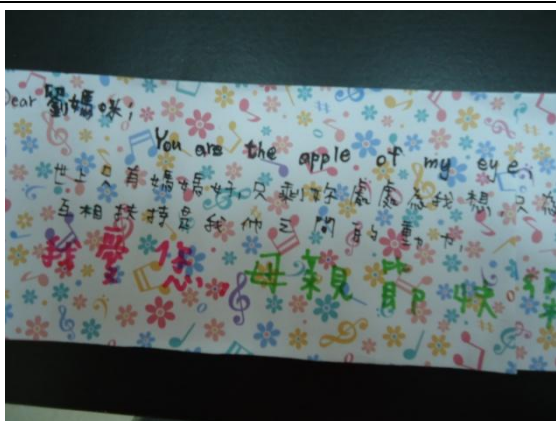 Dear 劉媽咪,
You are the apple of my eye,
世上只有媽媽好,只剩妳處處為我想,只
互相扶持是我們之間的動力
我愛您。母親節快樂